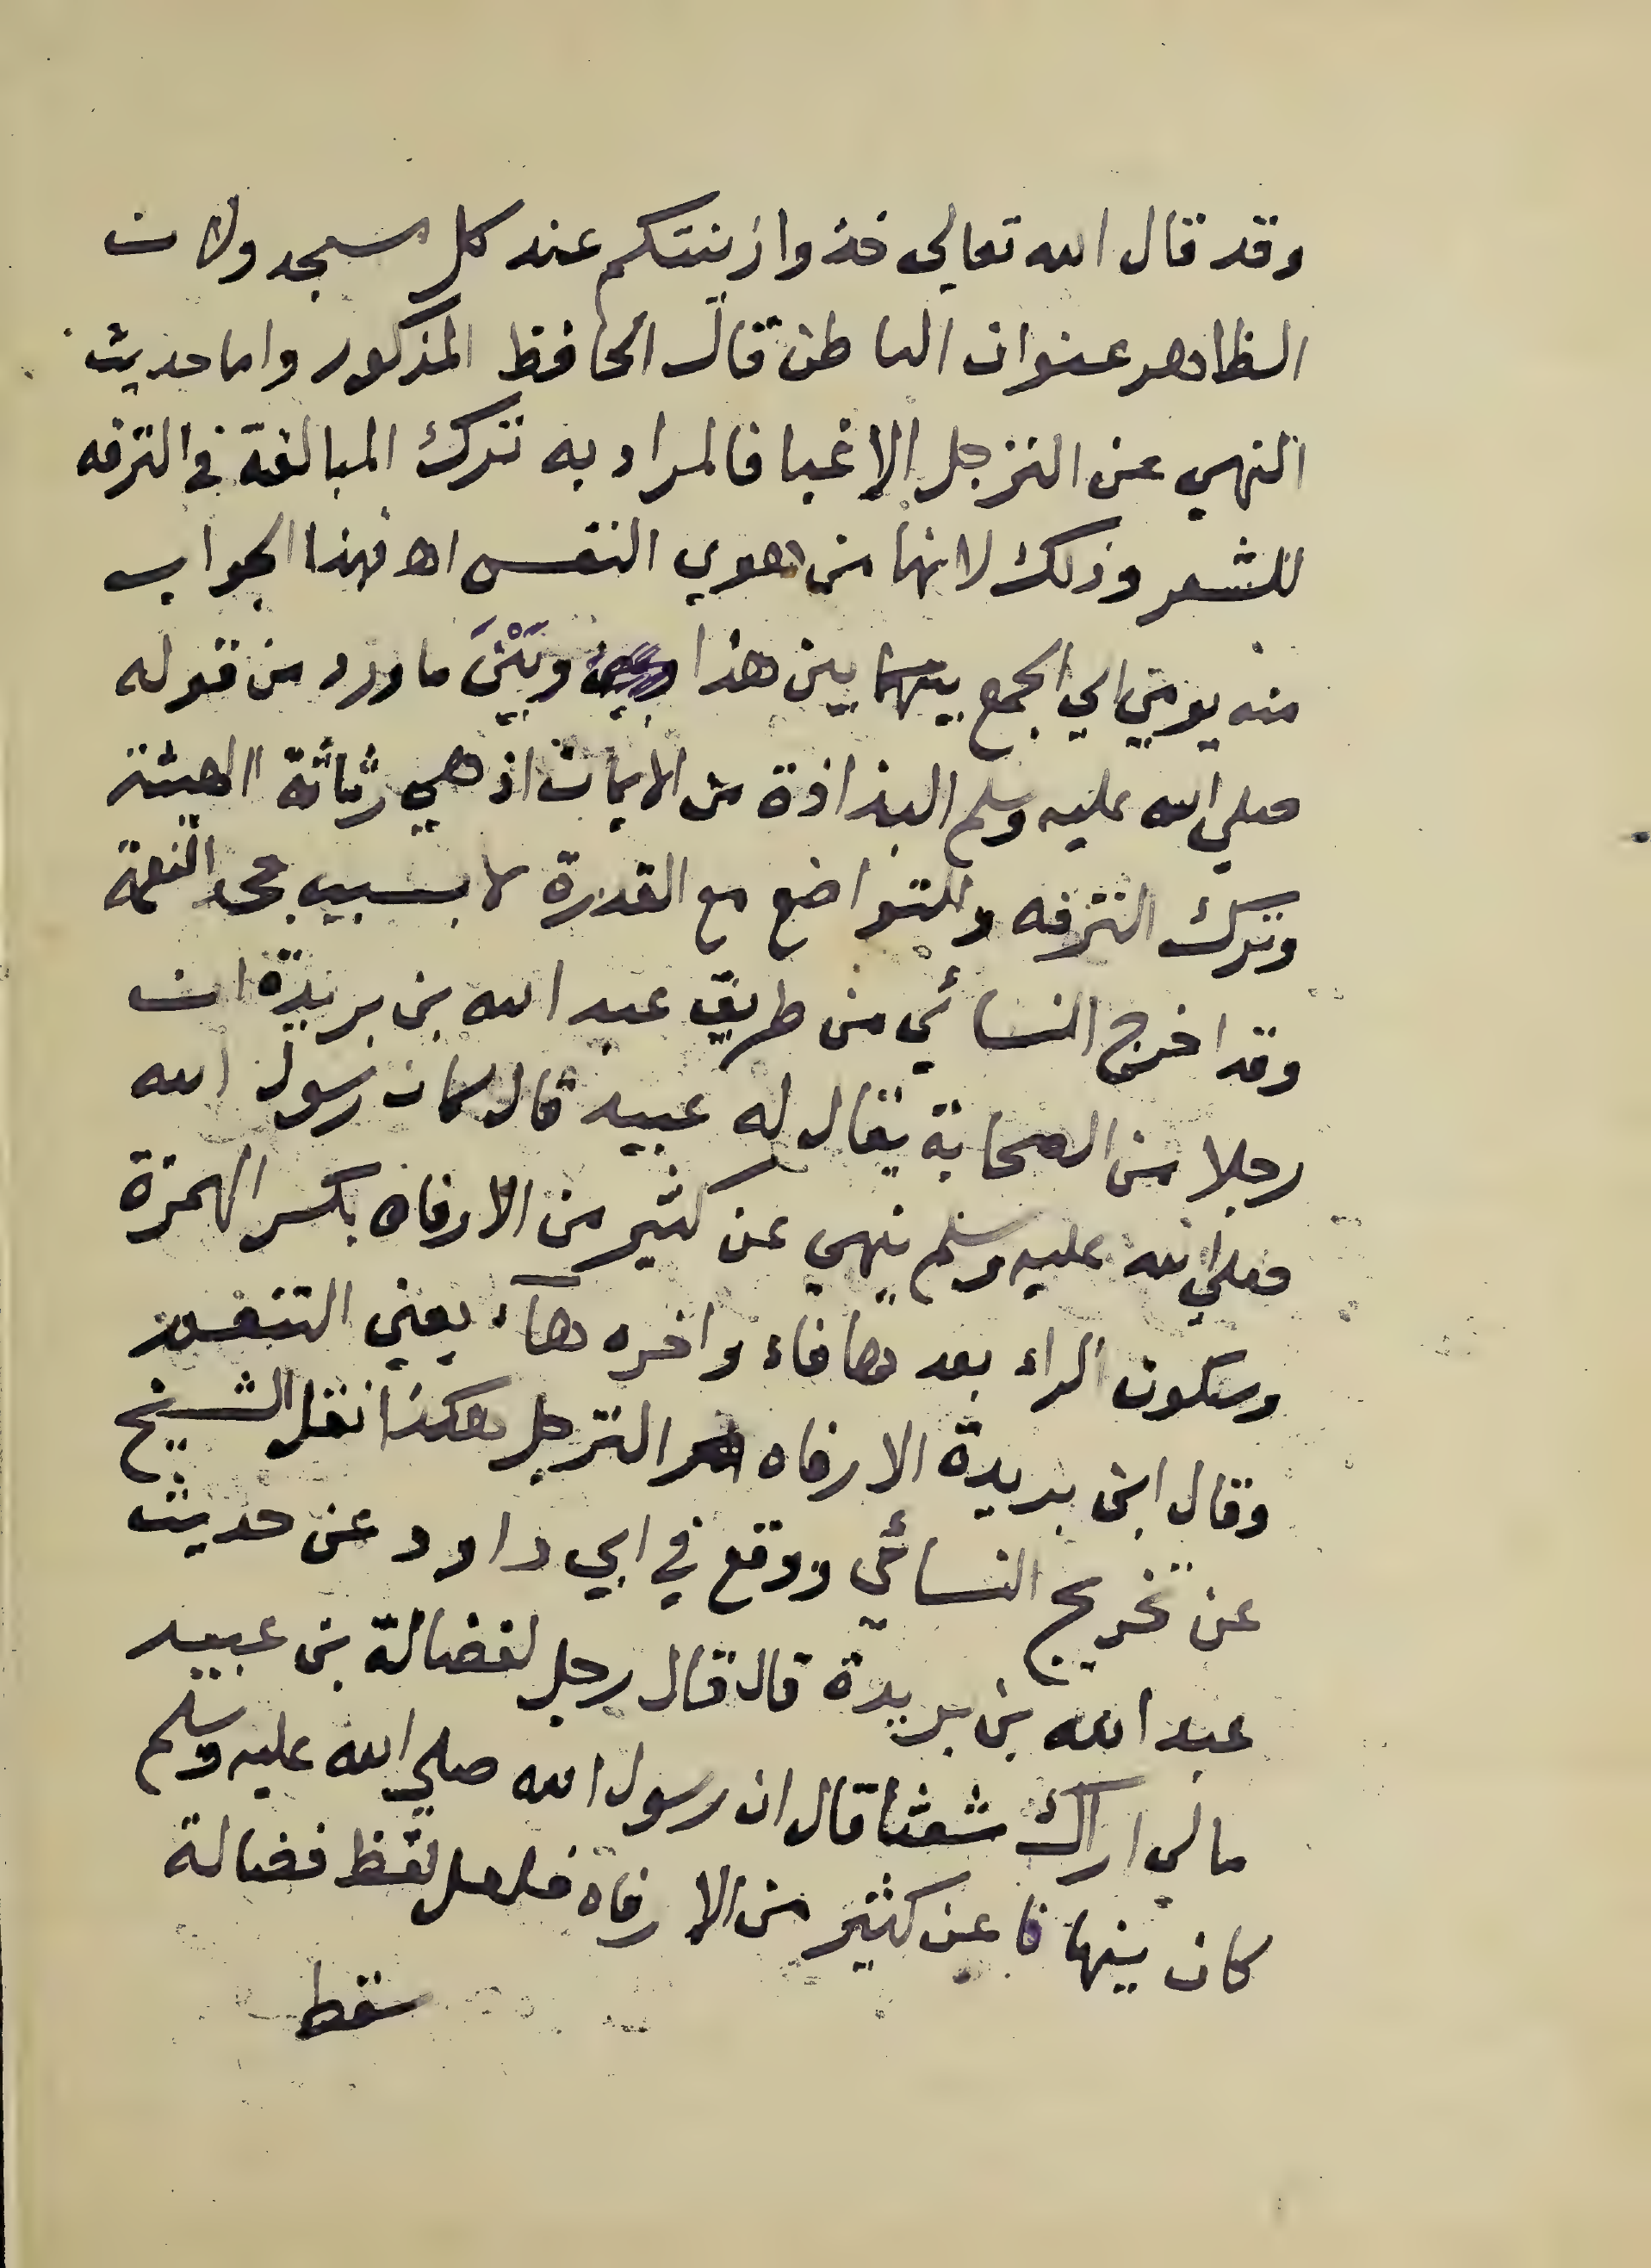 وقد قال الله تعالى خذوا زينتكم عند كل مسجد ولان
الظاهر عنوان الباطن قال الحافظ المذكور واما حديث
النهي عن الترجل الا غبا فالمراد به ترك المبالغة في الترفه
للشعر وذلك لانها من هوي النفس اه فهذا الجواب
منه يومي الي الجمع بينهما بين هذا وبَيْنَ ما ورد من قوله
صلي الله عليه وسلم البذاذة من الايمان اذ هي رثاثة الهيئة
وترك الترفه وللتواضع مع القدرة لا بسبب جحد النعمة
وقد اخرج النسائي من طريق عبد الله بن بريدة ان
رجلا من الصحابة يقال له عبيد قال كان رسول الله
صلي الله عليه وسلم ينهي عن كثير من الارفاه بكسر الهمزة
وسكون الراء بعدها فاء واخره هآء يعني التنعم
وقال ابن بريدة الارفاه الترجل هكذا نقل الشيخ
عن تخريج النسائي ووقع في ابي داود عن حديث
عبد الله بن بريدة قال قال رجل لفضالة بن عبيد
مالي اراك شعثا قال ان رسول الله صلي الله عليه وسلم
كان ينهانا عن كثير من الارفاه فلعل لفظ فضالة
سقط